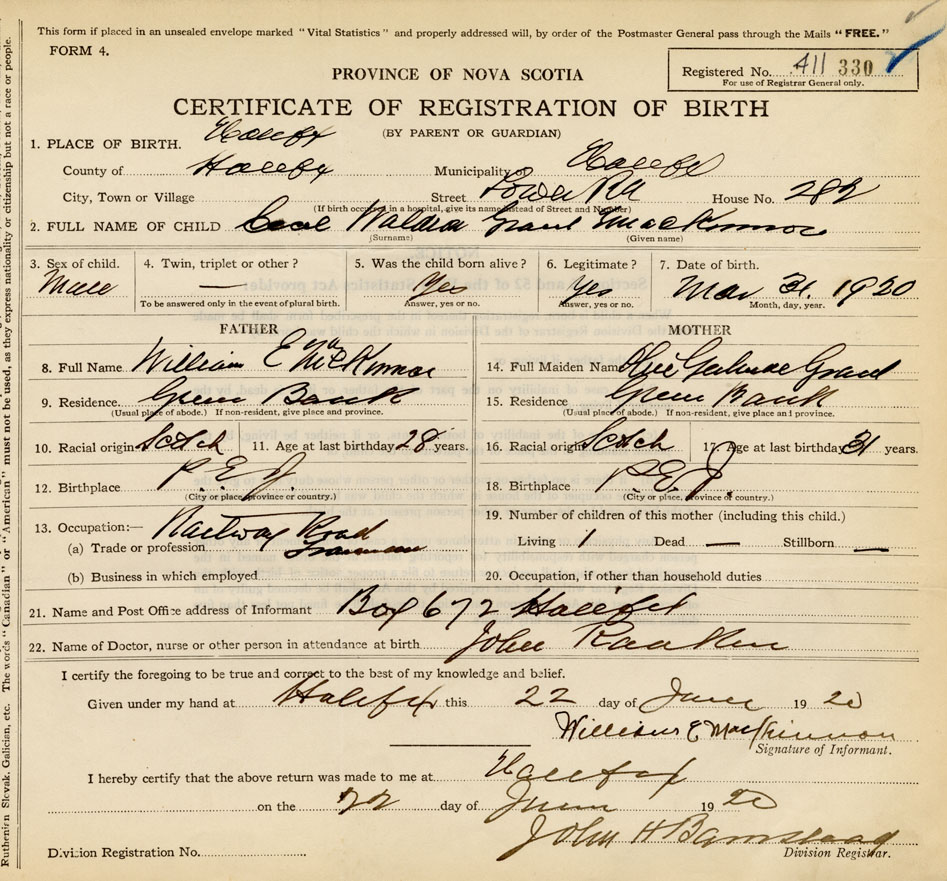 This form if placed in an unsealed envelope marked "Vital Statistics" and properly addressed will, by order of the Postmaster General pass through the Mails "FREE."
FORM 4.
Registered No. 411 330
For use of Registrar General only.
PROVINCE OF NOVA SCOTIA
CERTIFICATE OF REGISTRATION OF BIRTH
(BY PARENT OR GUARDIAN)
1. PLACE OF BIRTH. Halifax
County of Halifax Municipality of Halifax
City, Town or Village Street House No. 282
(If birth occurred in a hospital, give its name instead of Street and Number)
2. FULL NAME OF CHILD Cecil Grant MacKinnon
(Surname) (Given name)
3. Sex of child. 4. Twin, triplet or other? 5. Was the child born alive? 6. Legitimate? 7. Date of birth.
Male — Yes Yes Mar 31. 1920
To be answered only in the event of plural birth. Answer, yes or no. Answer, yes or no. Month, day, year.
FATHER MOTHER
8. Full Name William E MacKinnon 14. Full Maiden Name Olive Gertrude Grant
9. Residence Green Bank 15. Residence Green Bank
(Usual place of abode.) If non-resident, give place and province. (Usual place of abode.) If non-resident, give place and province.
10. Racial origin Scotch 11. Age at last birthday 28 years. 16. Racial origin Scotch 17. Age at last birthday 31 years.
12. Birthplace P.E.I. 18. Birthplace P.E.I.
(City or place, province or country.) (City or place, province or country.)
13. Occupation:— Railway Road 19. Number of children of this mother (including this child.)
(a) Trade or profession Living 1 Dead — Stillborn —
(b) Business in which employed 20. Occupation, if other than household duties
21. Name and Post Office address of Informant Box 672 Halifax
22. Name of Doctor, nurse or other person in attendance at birth John
I certify the foregoing to be true and correct to the best of my knowledge and belief.
Given under my hand at Halifax this 22 day of June 19 20
William E MacKinnon
Signature of Informant.
I hereby certify that the above return was made to me at Halifax
on the 22 day of June 19 20
John H Barnstead
Division Registration No. Division Registrar.
Ruthenian Slovak, Galician, etc. The words "Canadian" or "American" must not be used, as they express nationality or citizenship but not a race or people.